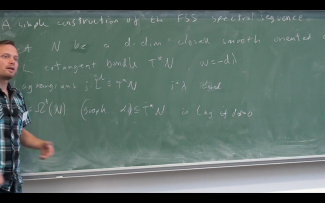 A simple construction of the FSS spectral sequence
N be a d-dim closed smooth oriented
cotangent bundle T*N w = -dλ
agrangians j: L → T*N j*λ
∈ Ω¹(N) (Graph ⊆ T*N is Lag if